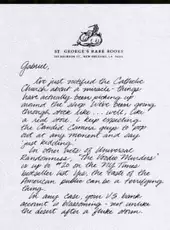 ST. GEORGE'S RARE BOOKS
Gabriel,
I've just notified the Catholic
Church about a miracle - things
have actually been picking up
around the shop. We've been going
through stock like... well, like
a real store. I keep expecting
the Candid Camera guys to pop
out at any moment and say
"just kidding."
In other news of Universal
Randomness, "The Voodoo Murders"
is up to #20 on the NY Times
bestseller list. Yes, the taste of the
American public can be a terrifying
thing.
In any case, your VS bank
account is blossoming - not unlike
the desert after a flash storm.